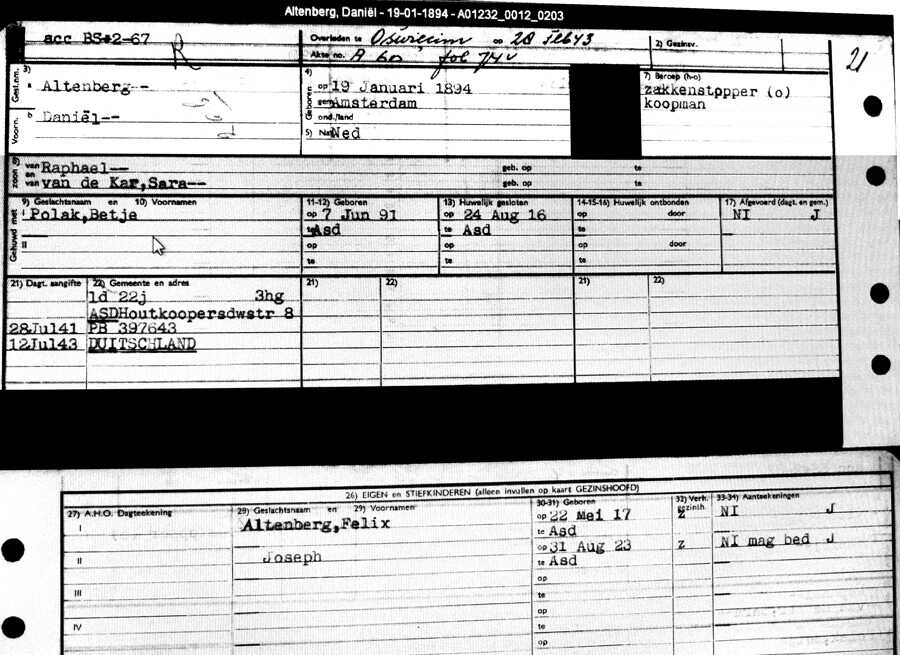 Altenberg, Daniël - 19-01-1894 - A01232_0012_0203
acc BS#2-67
R
Overleden te Oswiecim op 28 Feb 43
Akte no. A 60 fol 74v
2) Gezinsv.
21
Gesl.nm. 3) a Altenberg--
Voorn. b Daniël--
4) Geboren op 19 Januari 1894
gem Amsterdam
ond./land
5) Nat Ned
7) Beroep (h-o)
zakkenstopper (o)
koopman
zoon van Raphael-- geb. op te
en van van de Kar,Sara-- geb. op te
Gehuwd met
9) Geslachtsnaam en 10) Voornamen
11-12) Geboren
13) Huwelijk gesloten
14-15-16) Huwelijk ontbonden
17) Afgevoerd (dagt. en gem.)
I Polak,Betje op 7 Jun 91 op 24 Aug 16 op door NI J
te Asd te Asd te
II op op op door
te te te
21) Dagt. aangifte 22) Gemeente en adres 21) 22) 21) 22)
ld 22j 3hg
ASDHoutkoopersdwstr 8
28Jul41 PB 397643
12Jul43 DUITSCHLAND
26) EIGEN en STIEFKINDEREN (alleen invullen op kaart GEZINSHOOFD)
27) A.H.O. Dagteekening 28) Geslachtsnaam en 29) Voornamen 30-31) Geboren 32) Verh. gezinh. 33-34) Aanteekeningen
I Altenberg,Felix op 22 Mei 17 Z NI J
te Asd
II Joseph op 31 Aug 23 Z NI mag bed J
te Asd
III op
te
IV op
te
op